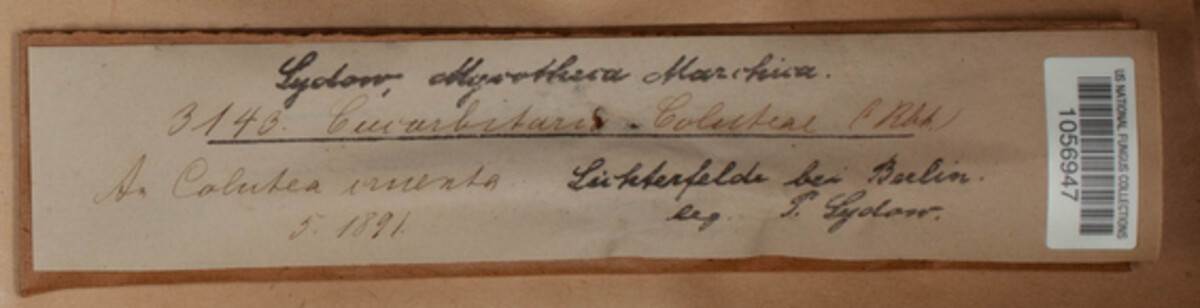 Sydow, Mycotheca Marchica.
3143. Cucurbitaria Coluteae (Rbh)
An Colutea cruenta
5. 1891.
Lichterfelde bei Berlin.
leg. P. Sydow.
US NATIONAL FUNGUS COLLECTIONS
1056947